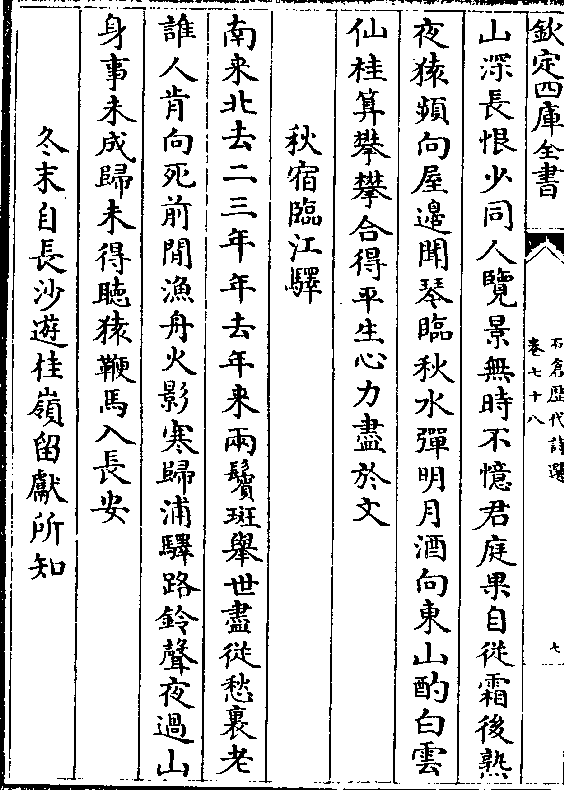 欽定四庫全書
石倉歷代詩選
卷七十八
七
山深長恨少同人覽景無時不憶君庭果自從霜後熟
夜猿頻向屋邊聞琴臨秋水彈明月酒向東山酌白雲
仙桂算攀攀合得平生心力盡於文
秋宿臨江驛
南来北去二三年年去年来兩鬢斑舉世盡從愁裏老
誰人肯向死前閒漁舟火影寒歸浦驛路鈴聲夜過山
身事未成歸未得聽猿鞭馬入長安
冬末自長沙遊桂嶺留獻所知